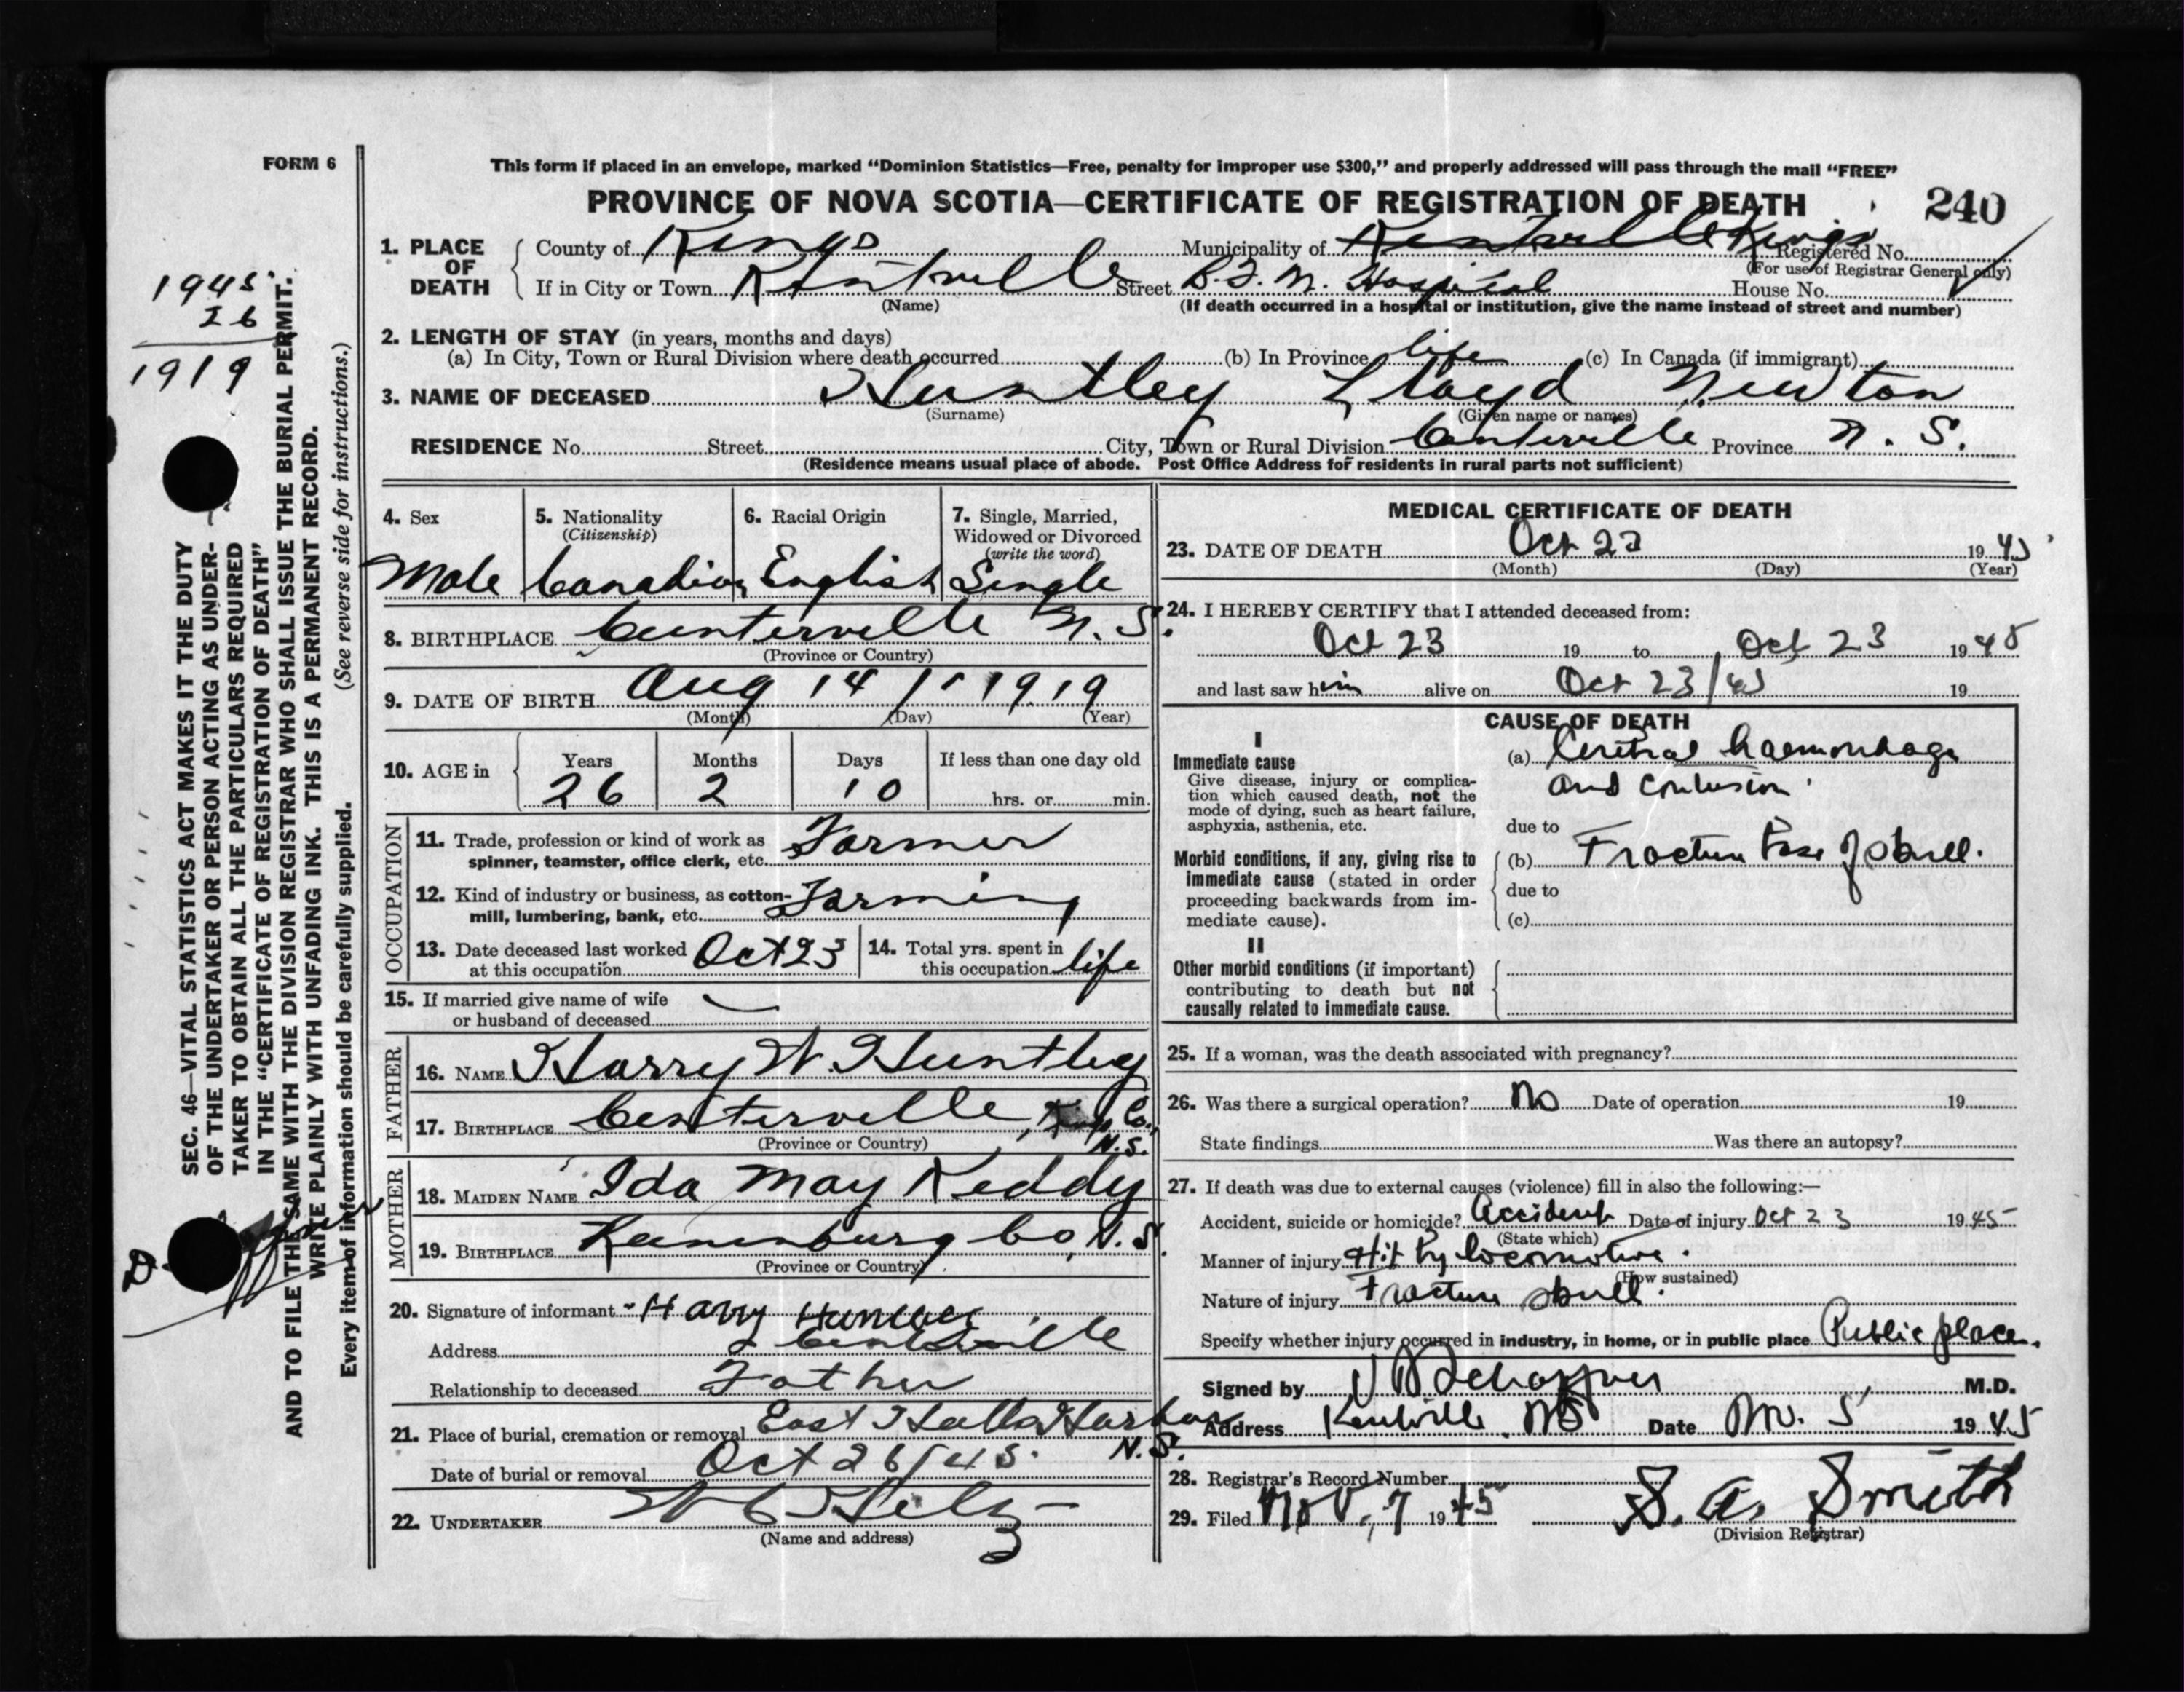 FORM 6
This form if placed in an envelope, marked “Dominion Statistics—Free, penalty for improper use $300,” and properly addressed will pass through the mail “FREE”
PROVINCE OF NOVA SCOTIA—CERTIFICATE OF REGISTRATION OF DEATH
240
1. PLACE OF DEATH
County of Kings Municipality of Kentville Kings Registered No.
(For use of Registrar General only)
If in City or Town Kentville Street B.F.M. Hospital House No.
(Name) (If death occurred in a hospital or institution, give the name instead of street and number)
2. LENGTH OF STAY (in years, months and days)
(a) In City, Town or Rural Division where death occurred (b) In Province life (c) In Canada (if immigrant)
3. NAME OF DECEASED Huntley Lloyd Newton
(Surname) (Given name or names)
RESIDENCE No. Street City, Town or Rural Division Centerville Province N. S.
(Residence means usual place of abode. Post Office Address for residents in rural parts not sufficient)
1945
26
1919
SEC. 46—VITAL STATISTICS ACT MAKES IT THE DUTY
OF THE UNDERTAKER OR PERSON ACTING AS UNDER-
TAKER TO OBTAIN ALL THE PARTICULARS REQUIRED
IN THE “CERTIFICATE OF REGISTRATION OF DEATH”
AND TO FILE THE SAME WITH THE DIVISION REGISTRAR WHO SHALL ISSUE THE BURIAL PERMIT.
WRITE PLAINLY WITH UNFADING INK. THIS IS A PERMANENT RECORD.
Every item of information should be carefully supplied. (See reverse side for instructions.)
4. Sex
Male
5. Nationality
(Citizenship)
Canadian
6. Racial Origin
English
7. Single, Married,
Widowed or Divorced
(write the word)
Single
8. BIRTHPLACE Centerville N. S.
(Province or Country)
9. DATE OF BIRTH Aug 14 1919
(Month) (Day) (Year)
10. AGE in
Years Months Days If less than one day old
26 2 10 hrs. or min.
OCCUPATION
11. Trade, profession or kind of work as
spinner, teamster, office clerk, etc. Farmer
12. Kind of industry or business, as cotton-
mill, lumbering, bank, etc. Farming
13. Date deceased last worked
at this occupation Oct 23
14. Total yrs. spent in
this occupation life
15. If married give name of wife
or husband of deceased
FATHER
16. NAME Harry W. Huntley
17. BIRTHPLACE Centerville, Co.,
(Province or Country) N.S.
MOTHER
18. MAIDEN NAME Ida May Keddy
19. BIRTHPLACE Lunenburg Co, N. S.
(Province or Country)
20. Signature of informant Harry Huntley
Address Centerville
Relationship to deceased Father
21. Place of burial, cremation or removal East Halls Harbor
N.S.
Date of burial or removal Oct 26/45.
22. UNDERTAKER
(Name and address)
MEDICAL CERTIFICATE OF DEATH
23. DATE OF DEATH Oct 23 1945
(Month) (Day) (Year)
24. I HEREBY CERTIFY that I attended deceased from:
Oct 23 19 to Oct 23 1945
and last saw him alive on Oct 23/45 19
CAUSE OF DEATH
I
Immediate cause
Give disease, injury or complica-
tion which caused death, not the
mode of dying, such as heart failure,
asphyxia, asthenia, etc.
(a) Cerebral haemorrhage
and contusion
due to
Morbid conditions, if any, giving rise to
immediate cause (stated in order
proceeding backwards from im-
mediate cause).
(b) Fracture base of skull.
due to
(c)
II
Other morbid conditions (if important)
contributing to death but not
causally related to immediate cause.
25. If a woman, was the death associated with pregnancy?
26. Was there a surgical operation? No Date of operation 19
State findings Was there an autopsy?
27. If death was due to external causes (violence) fill in also the following:—
Accident, suicide or homicide? Accident Date of injury Oct 23 1945
(State which)
Manner of injury Hit by locomotive.
(How sustained)
Nature of injury Fracture skull.
Specify whether injury occurred in industry, in home, or in public place Public place.
Signed by Schaffner M.D.
Address Kentville. NS Date Nov. 5 1945
28. Registrar's Record Number
29. Filed Nov. 7 1945 S. A. Smith
(Division Registrar)